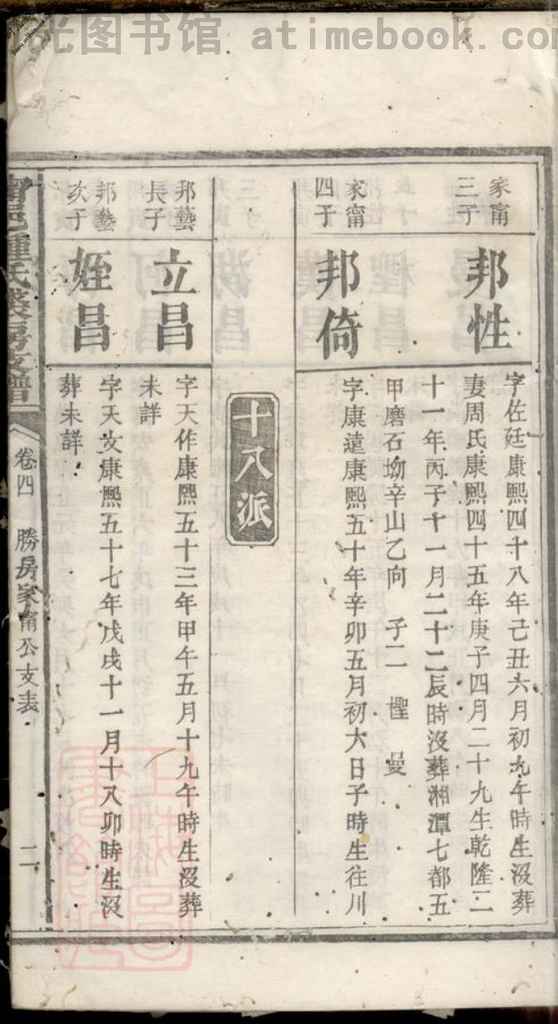 光图书馆 atimebook.com
家甯
三子
邦性
字佐廷康熙四十八年己丑六月初九午時生沒葬
妻周氏康熙四十五年庚子四月二十九生乾隆二
十一年丙子十一月二十二辰時沒葬湘潭七都五
甲磨石坳辛山乙向 子二 㮨 曼
家甯
四子
邦倚
字康遠康熙五十年辛卯五月初六日子時生往川
十八派
邦藝
長子
立昌
字天作康熙五十三年甲午五月十九午時生沒葬
未詳
邦藝
次子
姪昌
字天文康熙五十七年戊戌十一月十八卯時生沒
葬未詳
氏 房支譜
卷四 勝房家甯公支表
二